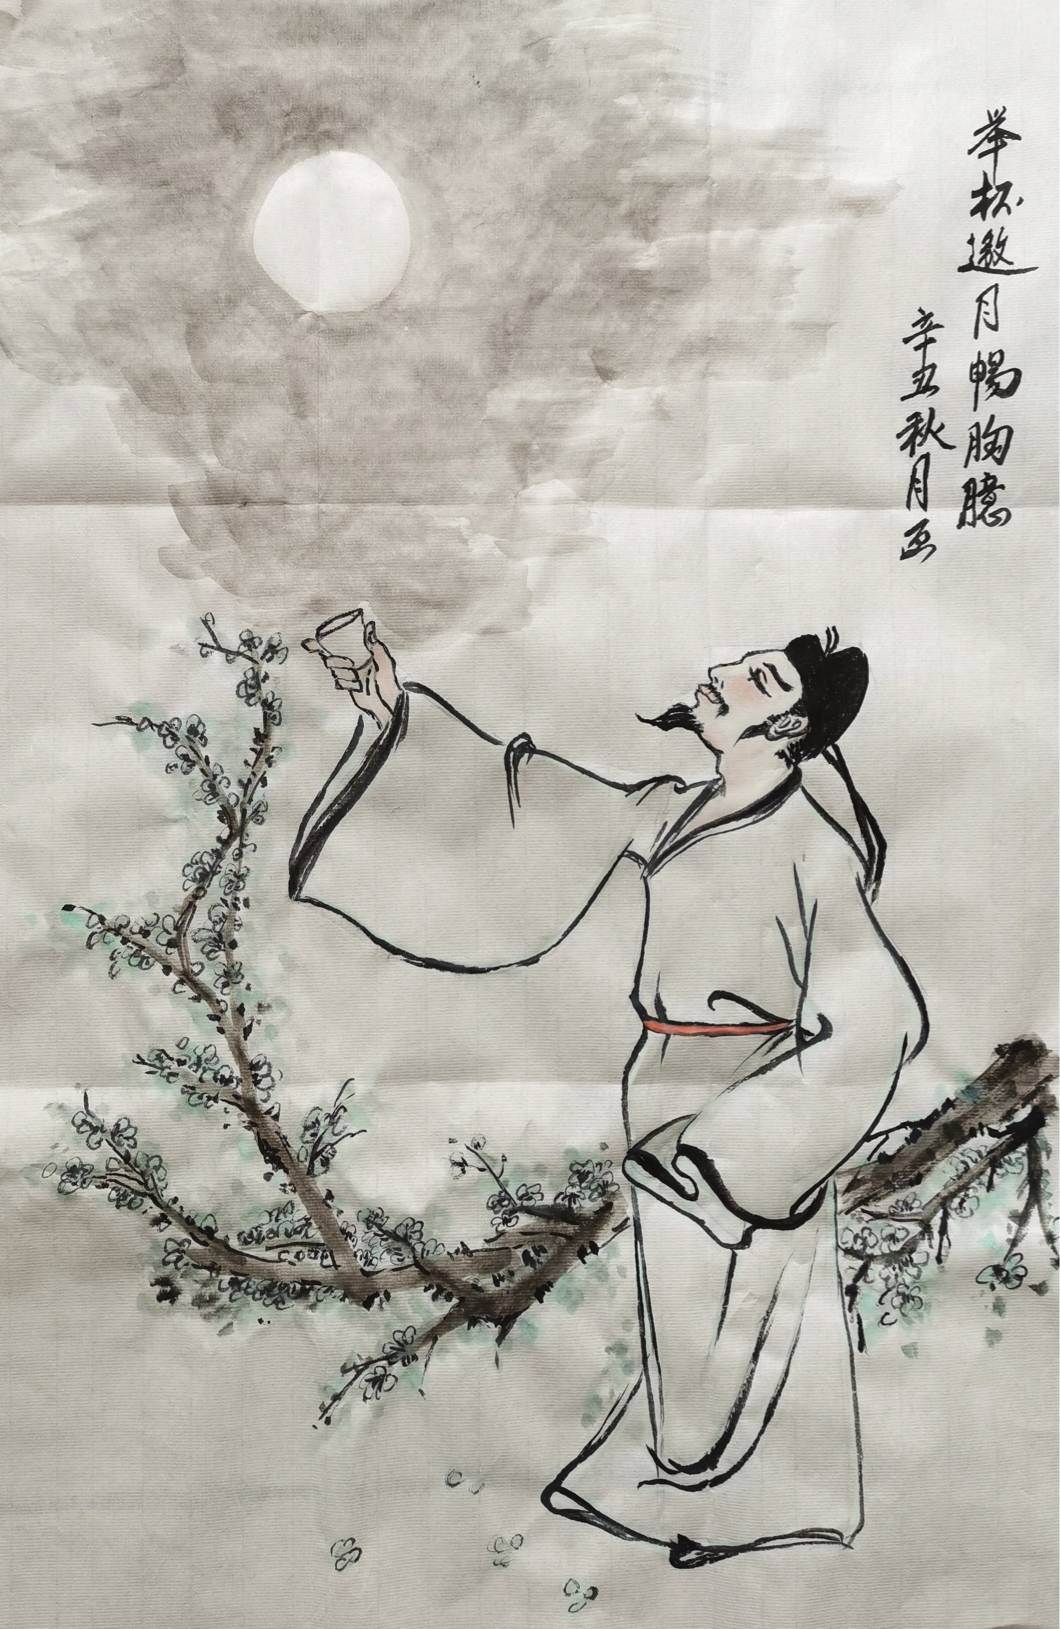 举杯邀月暢胸臆
辛丑秋月画